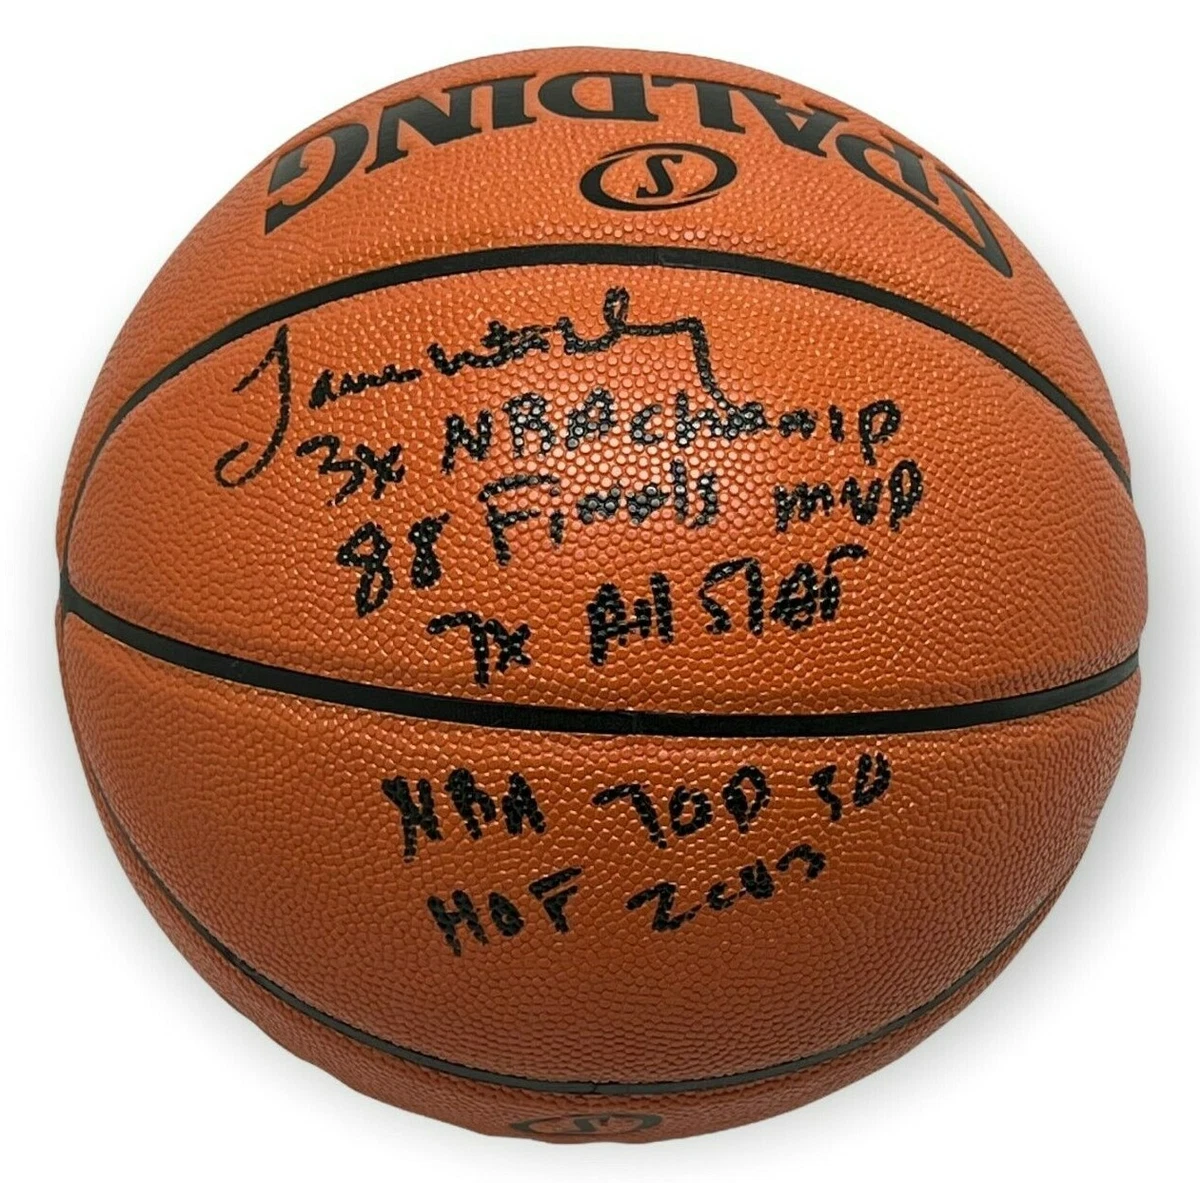 SPALDING
S
James Worthy
3x NBA champ
88 Finals MVP
7x All STAR
NBA TOP 50
HOF 2003
S